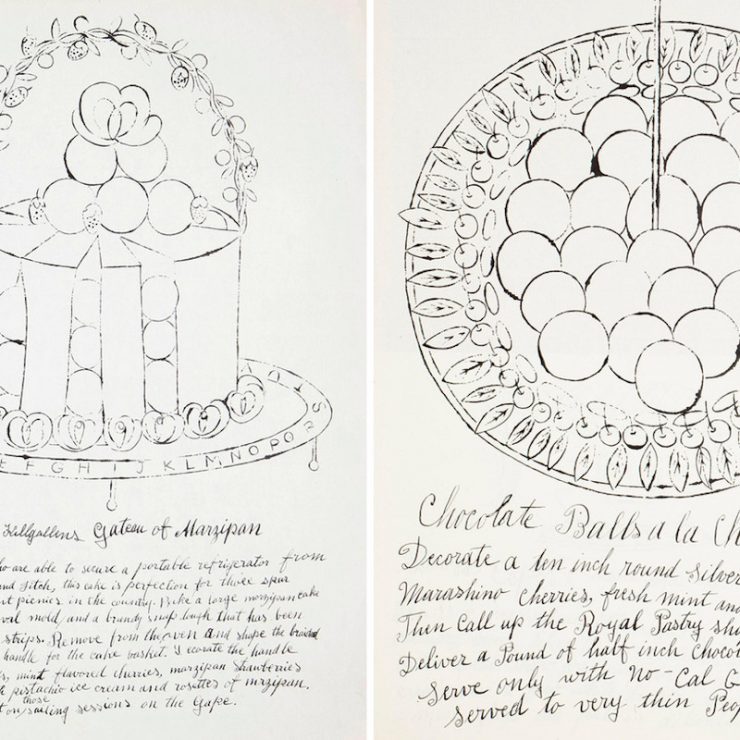 E F G H I J K L M N O P
Kellgallens Gateau of Marzipan
ho are able to secure a portable refrigerator from
and Fitch, this cake is perfection for those spur
picnics in the country. Bake a large marzipan cake
mold and a brandy snap that has been
strips. Remove from the oven and shape the braided
handle for the cake basket. Decorate the handle
mint flavored cherries, marzipan strawberries
pistachio ice cream and rosettes of mrzipan.
on those sailing sessions on the Gape.
Chocolate Balls a la Ch
Decorate a ten inch round silver
Marashino cherries, fresh mint and
Then call up the Royal Pastry sho
Deliver a Pound of half inch chocol
serve only with no-Cal G
served to very thin Peop